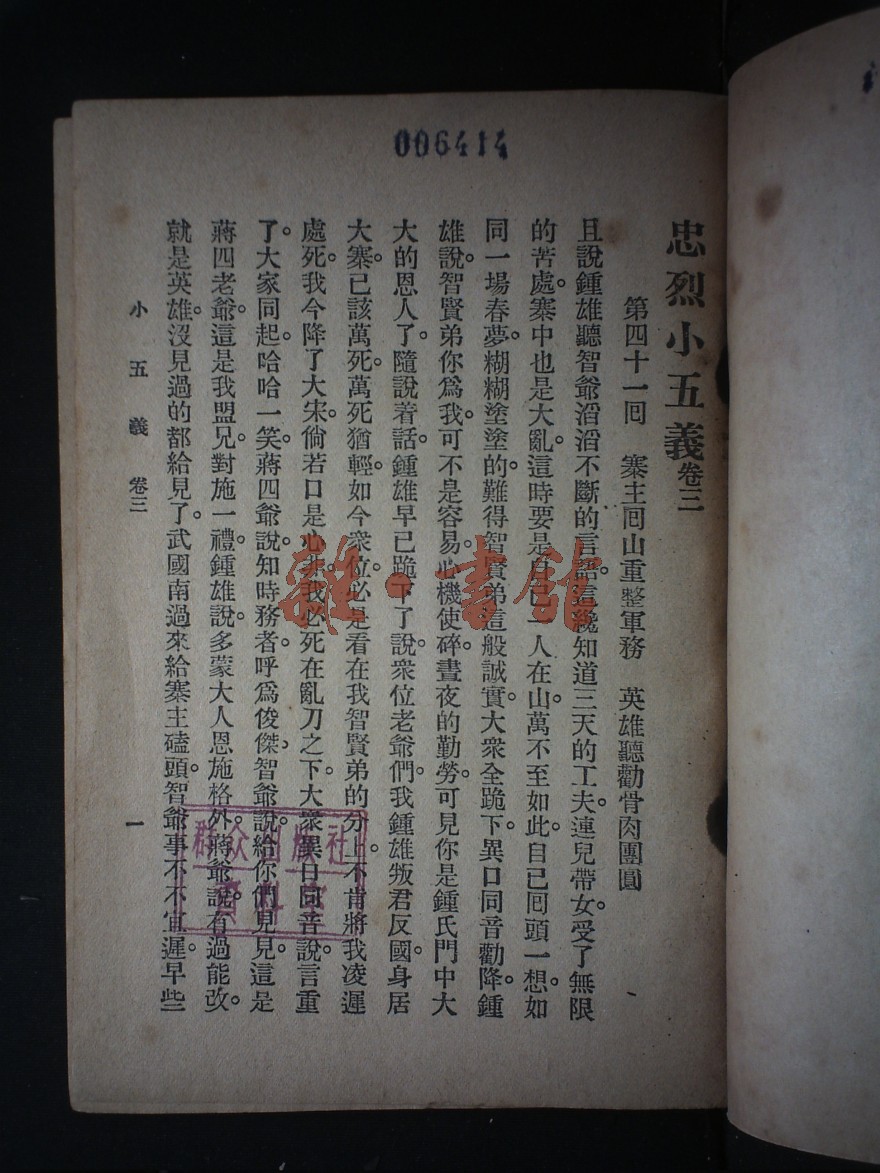 006414
忠烈小五義卷三
第四十一回　寨主囘山重整軍務　英雄聽勸骨肉團圓
且說鍾雄聽智爺滔滔不斷的言語。這纔知道三天的工夫。連兒帶女。受了無限
的苦處。寨中也是大亂。這時要是自己一人在山。萬不至如此。自已囘頭一想。如
同一場春夢。糊糊塗塗的。難得智賢弟這般誠實。大衆全跪下。異口同音勸降。鍾
雄說。智賢弟你爲我。可不是容易。心機使碎。晝夜的勤勞。可見你是鍾氏門中大
大的恩人了。隨說着話。鍾雄早已跪下了。說衆位老爺們。我鍾雄叛君反國。身居
大寨。已該萬死。萬死猶輕。如今衆位。必是看在我智賢弟的分上。不肯將我凌遲
處死。我今降了大宋。倘若口是心非。我必死在亂刀之下。大衆異口同音說。言重
了。大家同起。哈哈一笑。蔣四爺說。知時務者。呼爲俊傑。智爺說。給你們見見。這是
蔣四老爺。這是我盟兄。對施一禮。鍾雄說。多蒙大人恩施格外。蔣爺說。有過能改。
就是英雄。沒見過的都給見了。武國南過來給寨主磕頭。智爺事不宜遲。早些
小五義　卷三　一
雜·書館
群众出版社